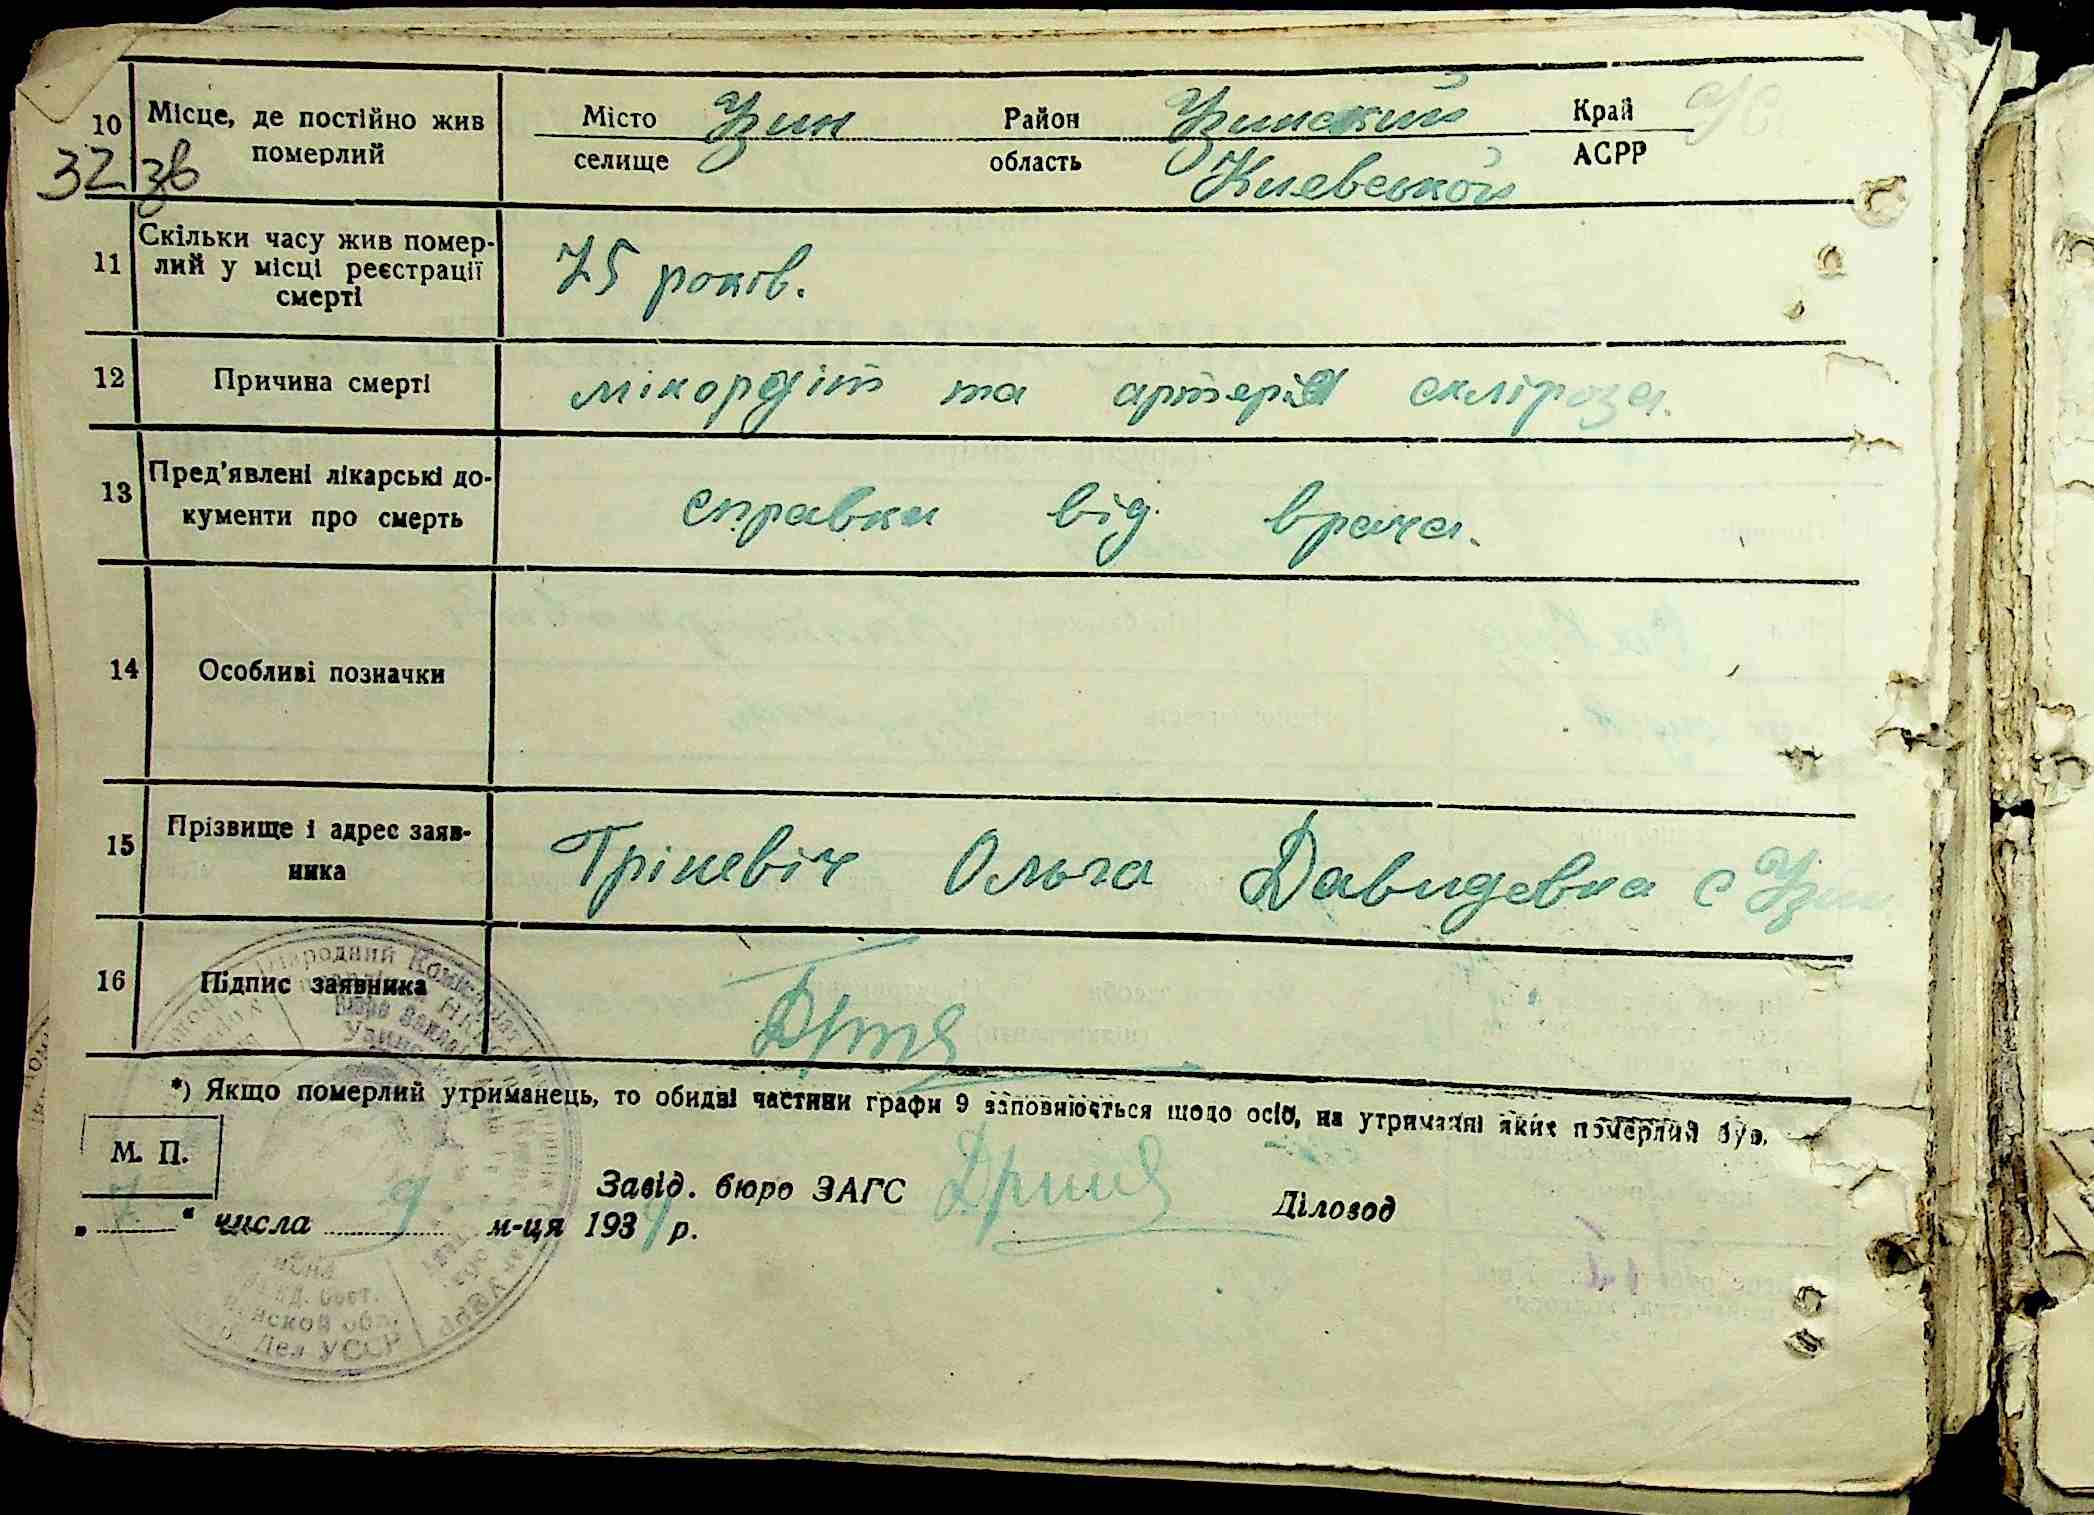 10 Місце, де постійно жив померлий
Місто Узин Район Узинский Край УС
селище область Киевської АСРР
32 зв
11 Скільки часу жив помер-
лий у місці реєстрації
смерті
75 років.
12 Причина смерті
мікордіт та артерія скліроза.
13 Пред'явлені лікарські до-
кументи про смерть
справки від врача.
14 Особливі позначки
15 Прізвище і адрес заяв-
ника
Грікевіч Ольга Давидевна с Узин
16 Підпис заявника
*) Якщо померлий утриманець, то обидві частини графи 9 заповнюється щодо осіб, на утриманні яких померлий був.
М. П.
Завід. бюро ЗАГС Діловод
„7“ числа 9 м-ця 1939 р.
Народний Комісаріат
Дел УССР